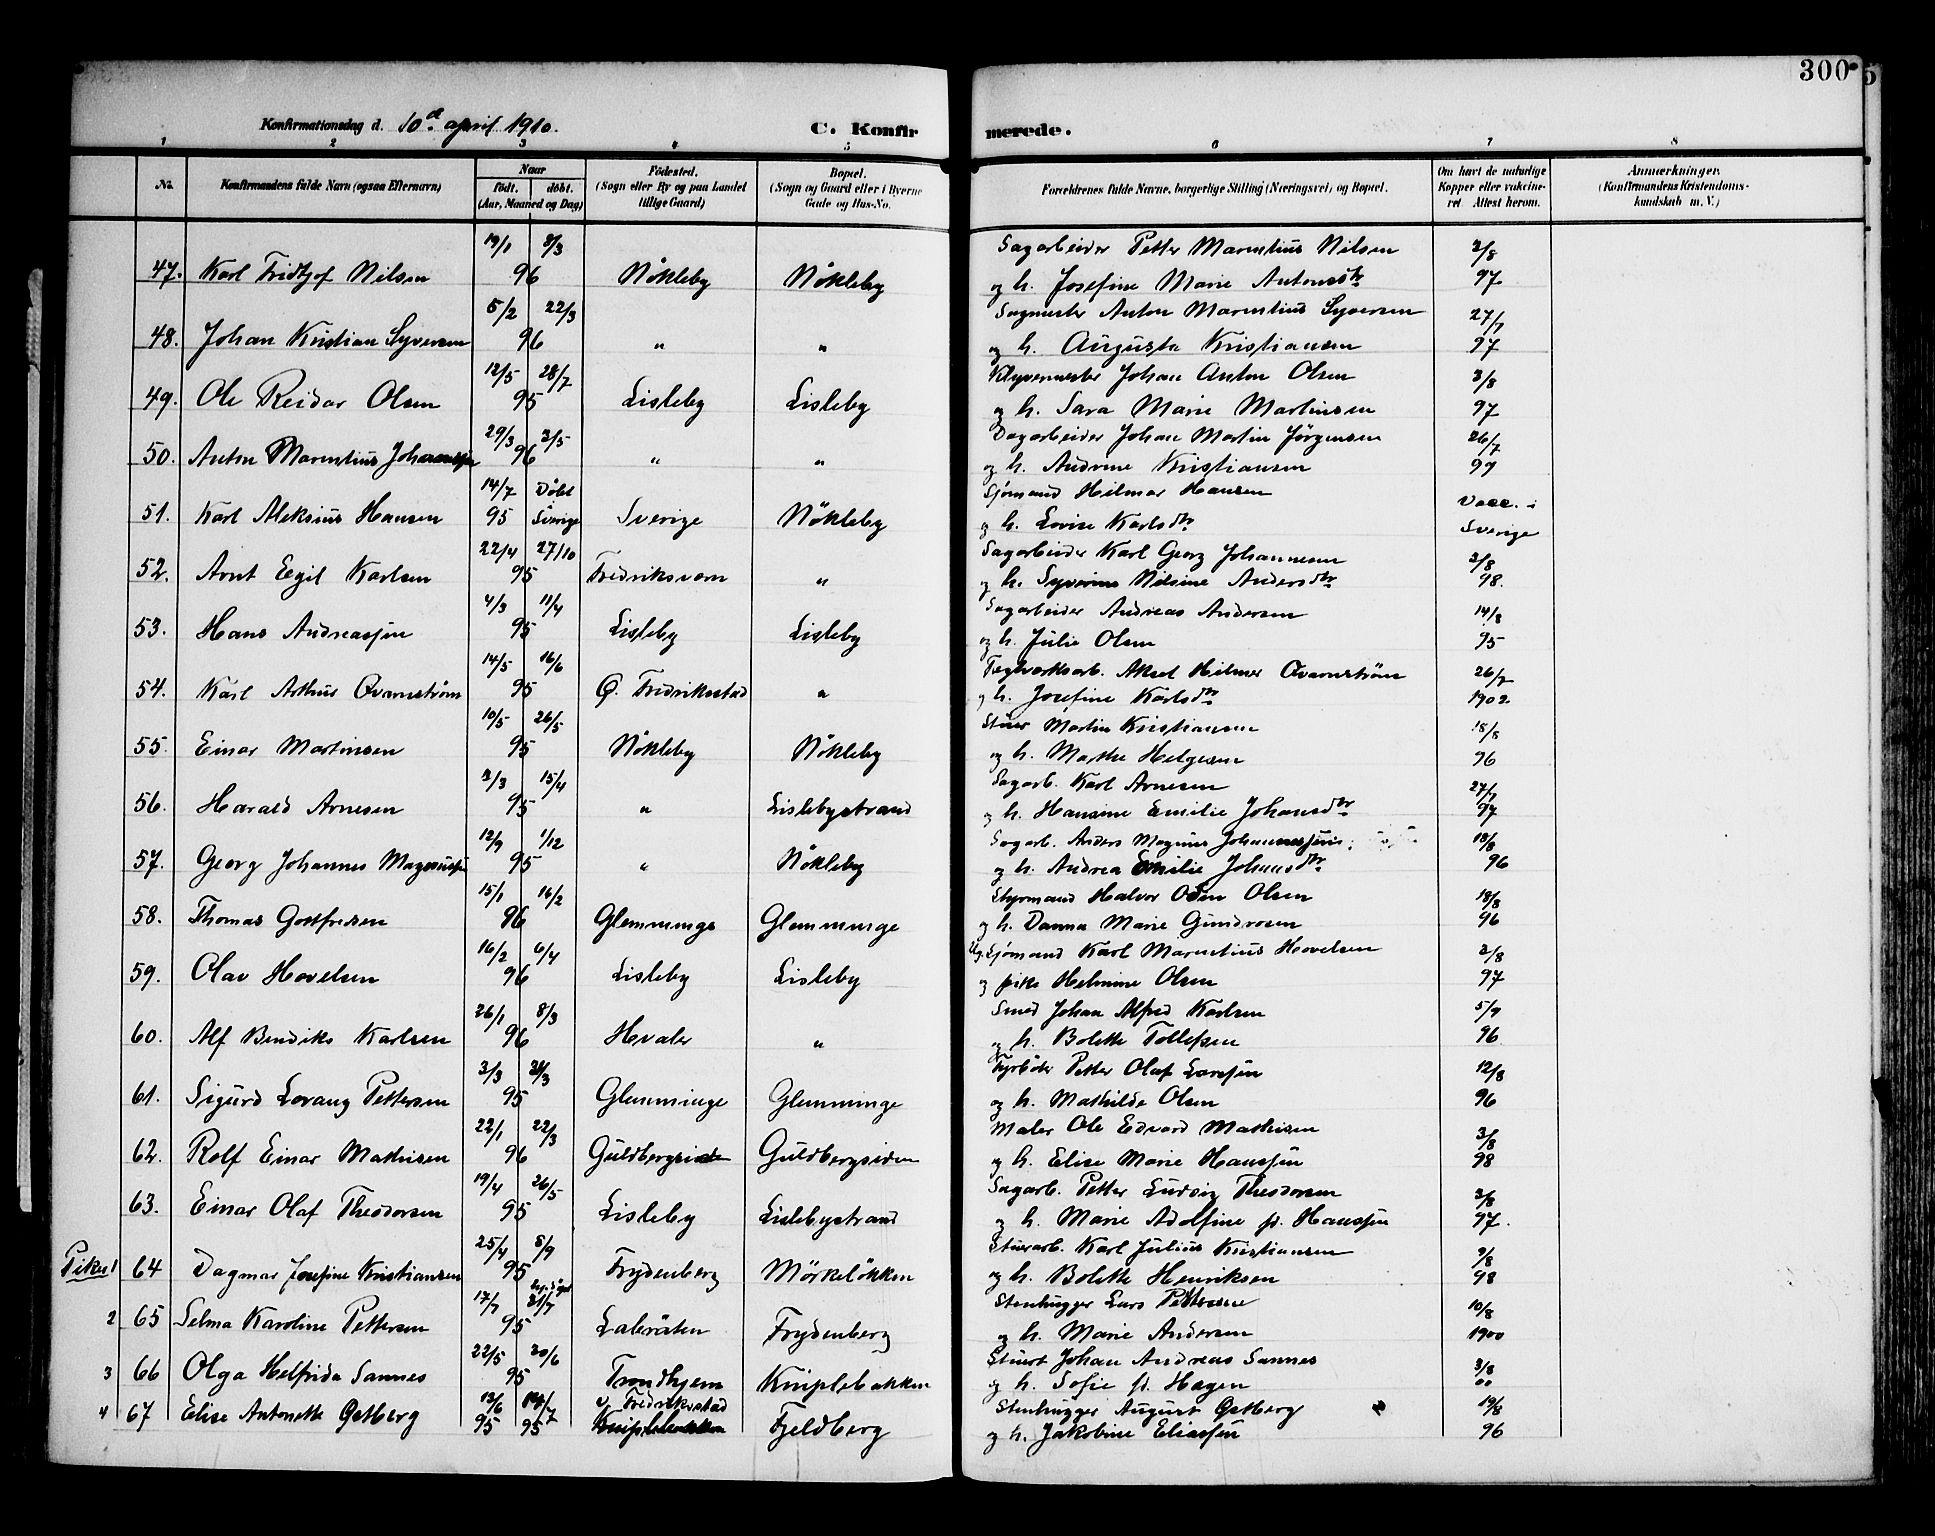 300
5
Konfirmationsdag d. 10de april 1910.
C. Konfirmerede.
1 2 3 4 5 6 7 8
No.
Konfirmandens fulde Navn (ogsaa Efternavn)
Naar
født. døbt.
(Aar, Maaned og Dag)
Fødested.
(Sogn eller By og paa Landet
tillige Gaard)
Bopæl.
(Sogn og Gaard eller i Byerne
Gade og Hus-No.
Forældrenes fulde Navne, borgerlige Stilling (Næringsvei) og Bopæl.
Om havt de naturlige
Kopper eller vakcine-
ret Attest herom.
Anmærkninger.
(Konfirmandens Kristendoms-
kundskab m. V.)
19/1 8/3 Sagarbeider Petter Marentius Nilsen 2/8
47. Karl Fridtjof Nilsen 96 Nökleby Nökleby og h. Josefine Marie Antonsdtr 97
5/2 22/3 Sagmester Anton Marentius Syversen 27/7
48. Johan Kristian Syversen 96 " " og h. Augusta Kristiansen 97
12/5 28/7 Klypemester Johan Anton Olsen 3/8
49. Ole Reidar Olsen 95 Lisleby Lisleby og h. Sara Marie Martinsen 97
29/3 2/5 Sagarbeider Johan Martin Jørgensen 26/7
50. Anton Marentius Johannessen 96 " " og h. Andrine Kristiansen 97
14/7 Döbt Sjømand Hilmar Hansen Vacc. i
51. Karl Aleksius Hansen 95 Sverige Sverige Nökleby og h. Lovise Karlsdtr Sverige
22/4 27/10 Sagarbeider Karl Georg Johannesen 2/8
52. Arnt Egil Karlsen 95 Fredriksværn " og h. Syverine Nilsine Andersdtr 98.
4/3 11/4 Sagarbeider Andreas Andersen 14/8
53. Hans Andreassen 95 Lisleby Lisleby og h. Julie Olsen 95
14/5 16/6 Teglverksarb. Aksel Hilmer Qvarnström 26/7
54. Karl Arthur Qvarnström 95 Ö. Fredriksstad " og h. Josefine Karlsdtr 1902
10/5 26/5 Stuer Martin Kristiansen 18/8
55. Einar Martinsen 95 Nökleby Nökleby og h. Marthe Helgesen 96
3/3 15/4 Sagarb. Karl Arnesen 27/7
56. Harald Arnesen 95 " Lislebystrand og h. Hansine Emilie Johansdtr 97
12/9 1/12 Sagarb. Anders Magnus Johannessen 18/8
57. Georg Johannes Magnussen 95 " Nökleby og h. Andrea Emilie Johansdtr 96
15/1 16/2 Styrmand Halvor Odin Olsen 18/8
58. Thomas Gottfredsen 96 Glemminge Glemminge og h. Danna Marie Gundrosen 96
16/2 6/4 Ug. Sjømand Karl Marentius Hovelsen 2/8
59. Olav Hovelsen 96 Lisleby Lisleby og pike Helmine Olsen 97
26/1 8/3 Smed Johan Alfred Karlsen 5/9
60. Alf Bendiks Karlsen 96 Hvaler " og h. Bolette Tollefsen 96
3/3 31/3 Fyrböter Petter Olaf Larssen 12/8
61. Sigurd Lorang Pettersen 95 Glemminge Glemminge og h. Mathilde Olsen 96
22/1 22/3 Maler Ole Edvard Mathisen 3/8
62. Rolf Einar Mathisen 96 Guldbergsiden Guldbergsiden og h. Elise Marie Hanssen 98
19/4 26/5 Sagarb. Petter Ludvig Theodorsen 3/8
63. Einar Olaf Theodorsen 95 Lisleby Lislebystrand og h. Marie Adolfine f. Hanssen 97.
25/4 8/9 Stuerarb. Karl Julius Kristiansen 9/8
Piker 1 64 Dagmar Josefine Kristiansen 95 Frydenberg Mörkelökken og h. Bolette Henriksen 98
17/7 21/7 Stenhugger Lars Pettersen 10/8
2 65 Selma Karoline Pettersen 95 Labråten Frydenberg og h. Marie Andersen 1900
22/5 30/6 Stuert Johan Andreas Sannes 3/8
3 66 Olga Helfrida Sannes 95 Trondhjem Kniplebakken og h. Sofie f. Hagen 00
13/6 14/7 v. Fredriksstad Stenhugger August Östberg 19/8
4 67 Elise Antonette Östberg 95 95 Fjeldberg og h. Jakobine Eliassen 96